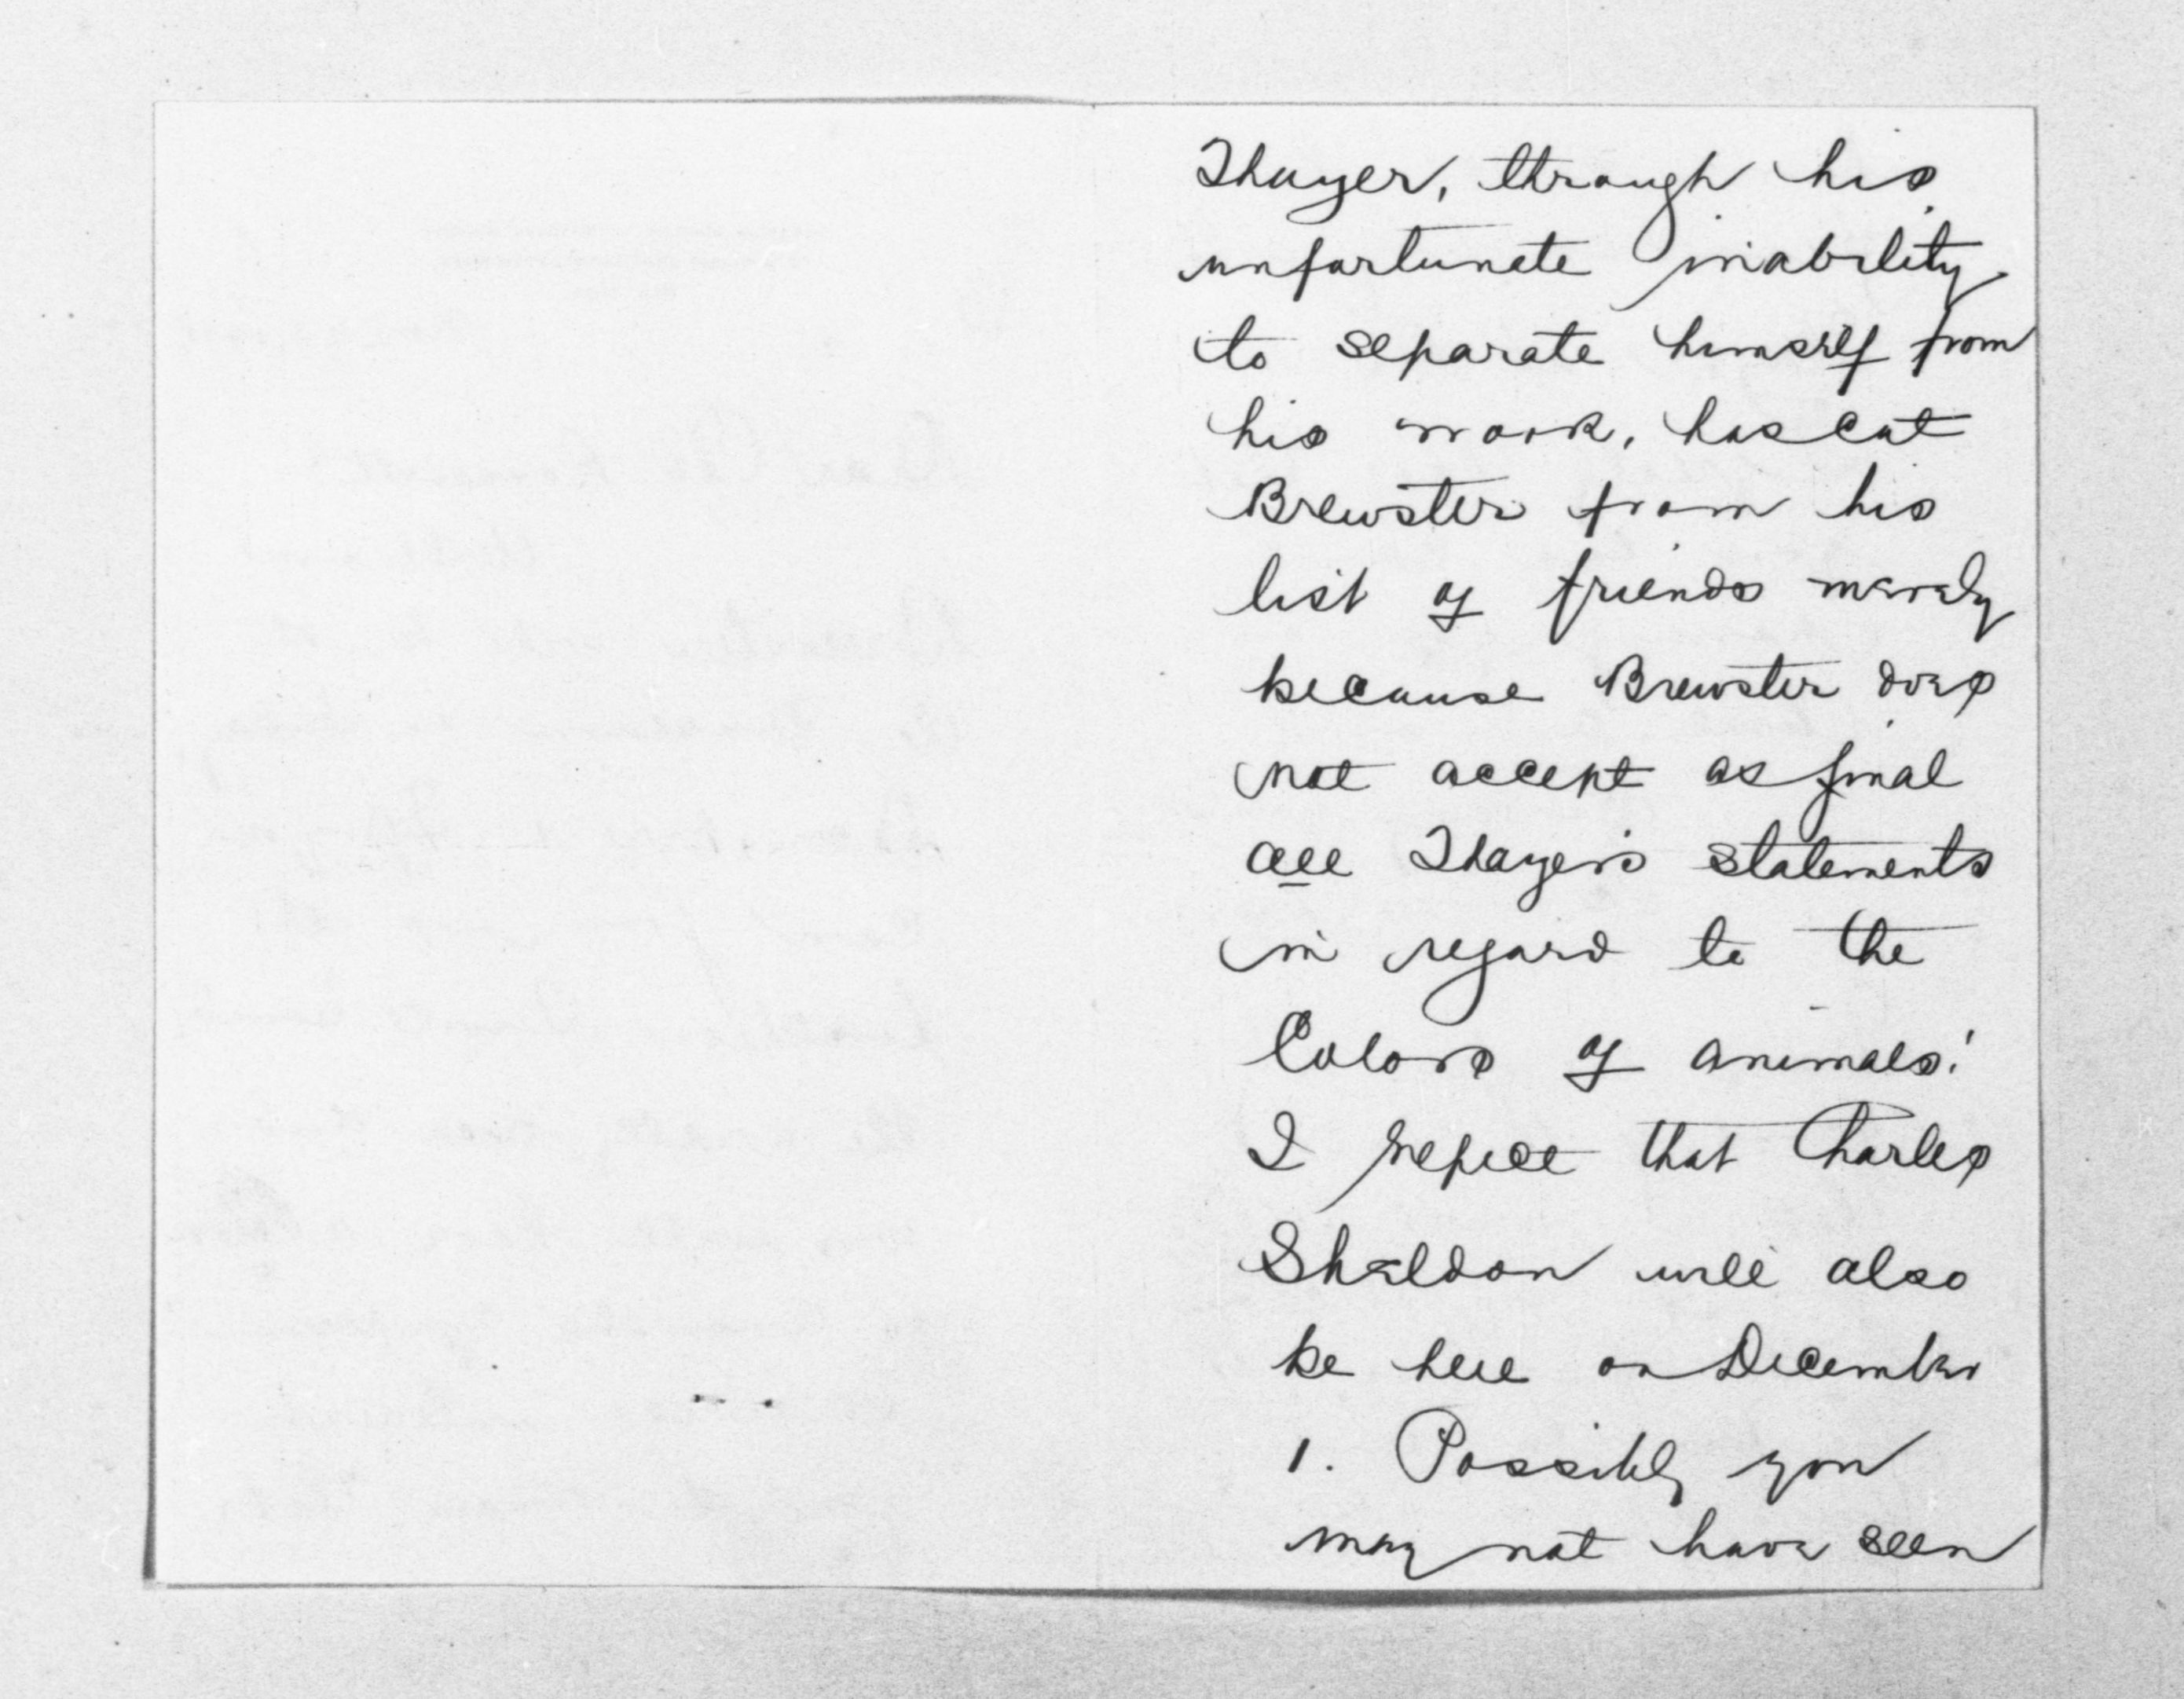 Thayer, through his
unfortunate inability
to separate himself from
his work, has cut
Brewster from his
list of friends merely
because Brewster does
not accept as final
all Thayer's statements
in regard to the
Colors of animals!
I repeat that Charles
Sheldon will also
be here on December
1. Possibly you
may not have seen